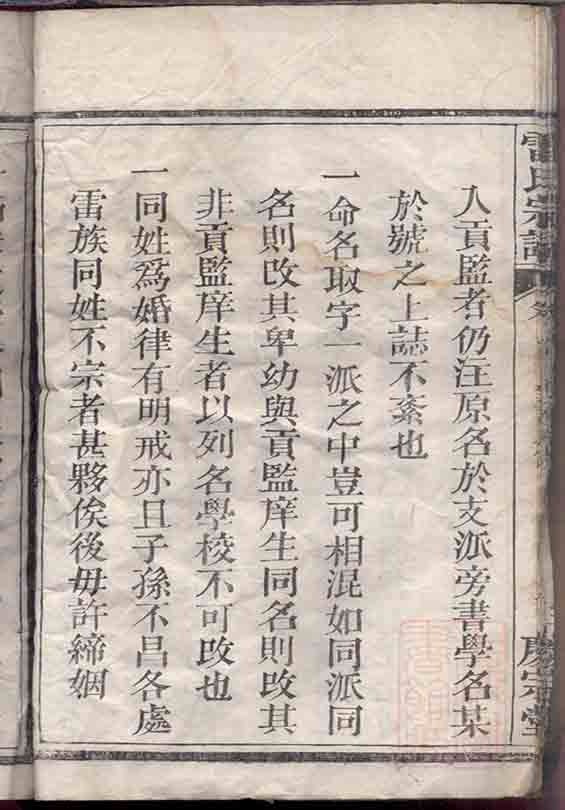 雷氏宗譜
慶宗堂
入貢監者仍注原名於支派旁書學名某
於號之上誌不紊也
一命名取字一派之中豈可相混如同派同
名則改其卑幼與貢監庠生同名則改其
非貢監庠生者以列名學校不可改也
一同姓為婚律有明戒亦且子孫不昌各處
雷族同姓不宗者甚夥俟後毋許締姻